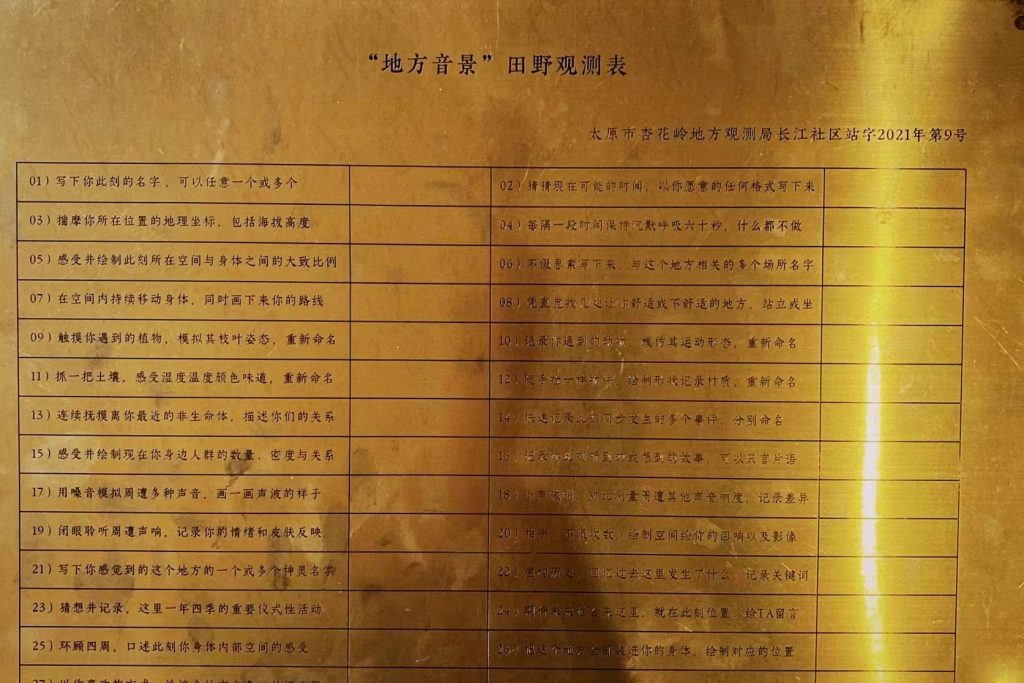 “地方音景”田野观测表
太原市杏花岭地方观测局长江社区站字2021年第9号
01）写下你此刻的名字，可以任意一个或多个
02）猜猜现在可能的时间，以你愿意的任何格式写下来
03）揣摩你所在位置的地理坐标，包括海拔高度
04）每隔一段时间保持沉默呼吸六十秒，什么都不做
05）感受并绘制此刻所在空间与身体之间的大致比例
06）不假思索写下来，与这个地方相关的多个场所名字
07）在空间内持续移动身体，同时画下来你的路线
08）凭直觉找几处让你舒适或不舒适的地方，站立或坐
09）触摸你遇到的植物，模拟其枝叶姿态，重新命名
10）记录你遇到的动物，模仿其运动形态，重新命名
11）抓一把土壤，感受湿度温度颜色味道，重新命名
12）随手捡一样物件，绘制形状记录材质，重新命名
13）连续抚摸离你最近的非生命体，描述你们的关系
14）快速记录此刻同步发生的多个事件，分别命名
15）感受并绘制现在你身边人群的数量、密度与关系
16）记录你此刻听到的或想到的故事，可以只言片语
17）用嗓音模拟周遭多种声音，画一画声波的样子
18）小声说话，对比测量周遭其他声音响度，记录差异
19）闭眼聆听周遭声响，记录你的情绪和皮肤反映
20）拍手，不限次数，绘制空间给你的回响以及影像
21）写下你感觉到的这个地方的一个或多个神灵名字
22）虚构历史，回忆过去这里发生了什么，记录关键词
23）猜想并记录，这里一年四季的重要仪式性活动
24）来之里，就在此刻位置，给TA留言
25）环顾四周，口述此刻你身体内部空间的感受
26）把这个地方全部装进你的身体，绘制对应的位置